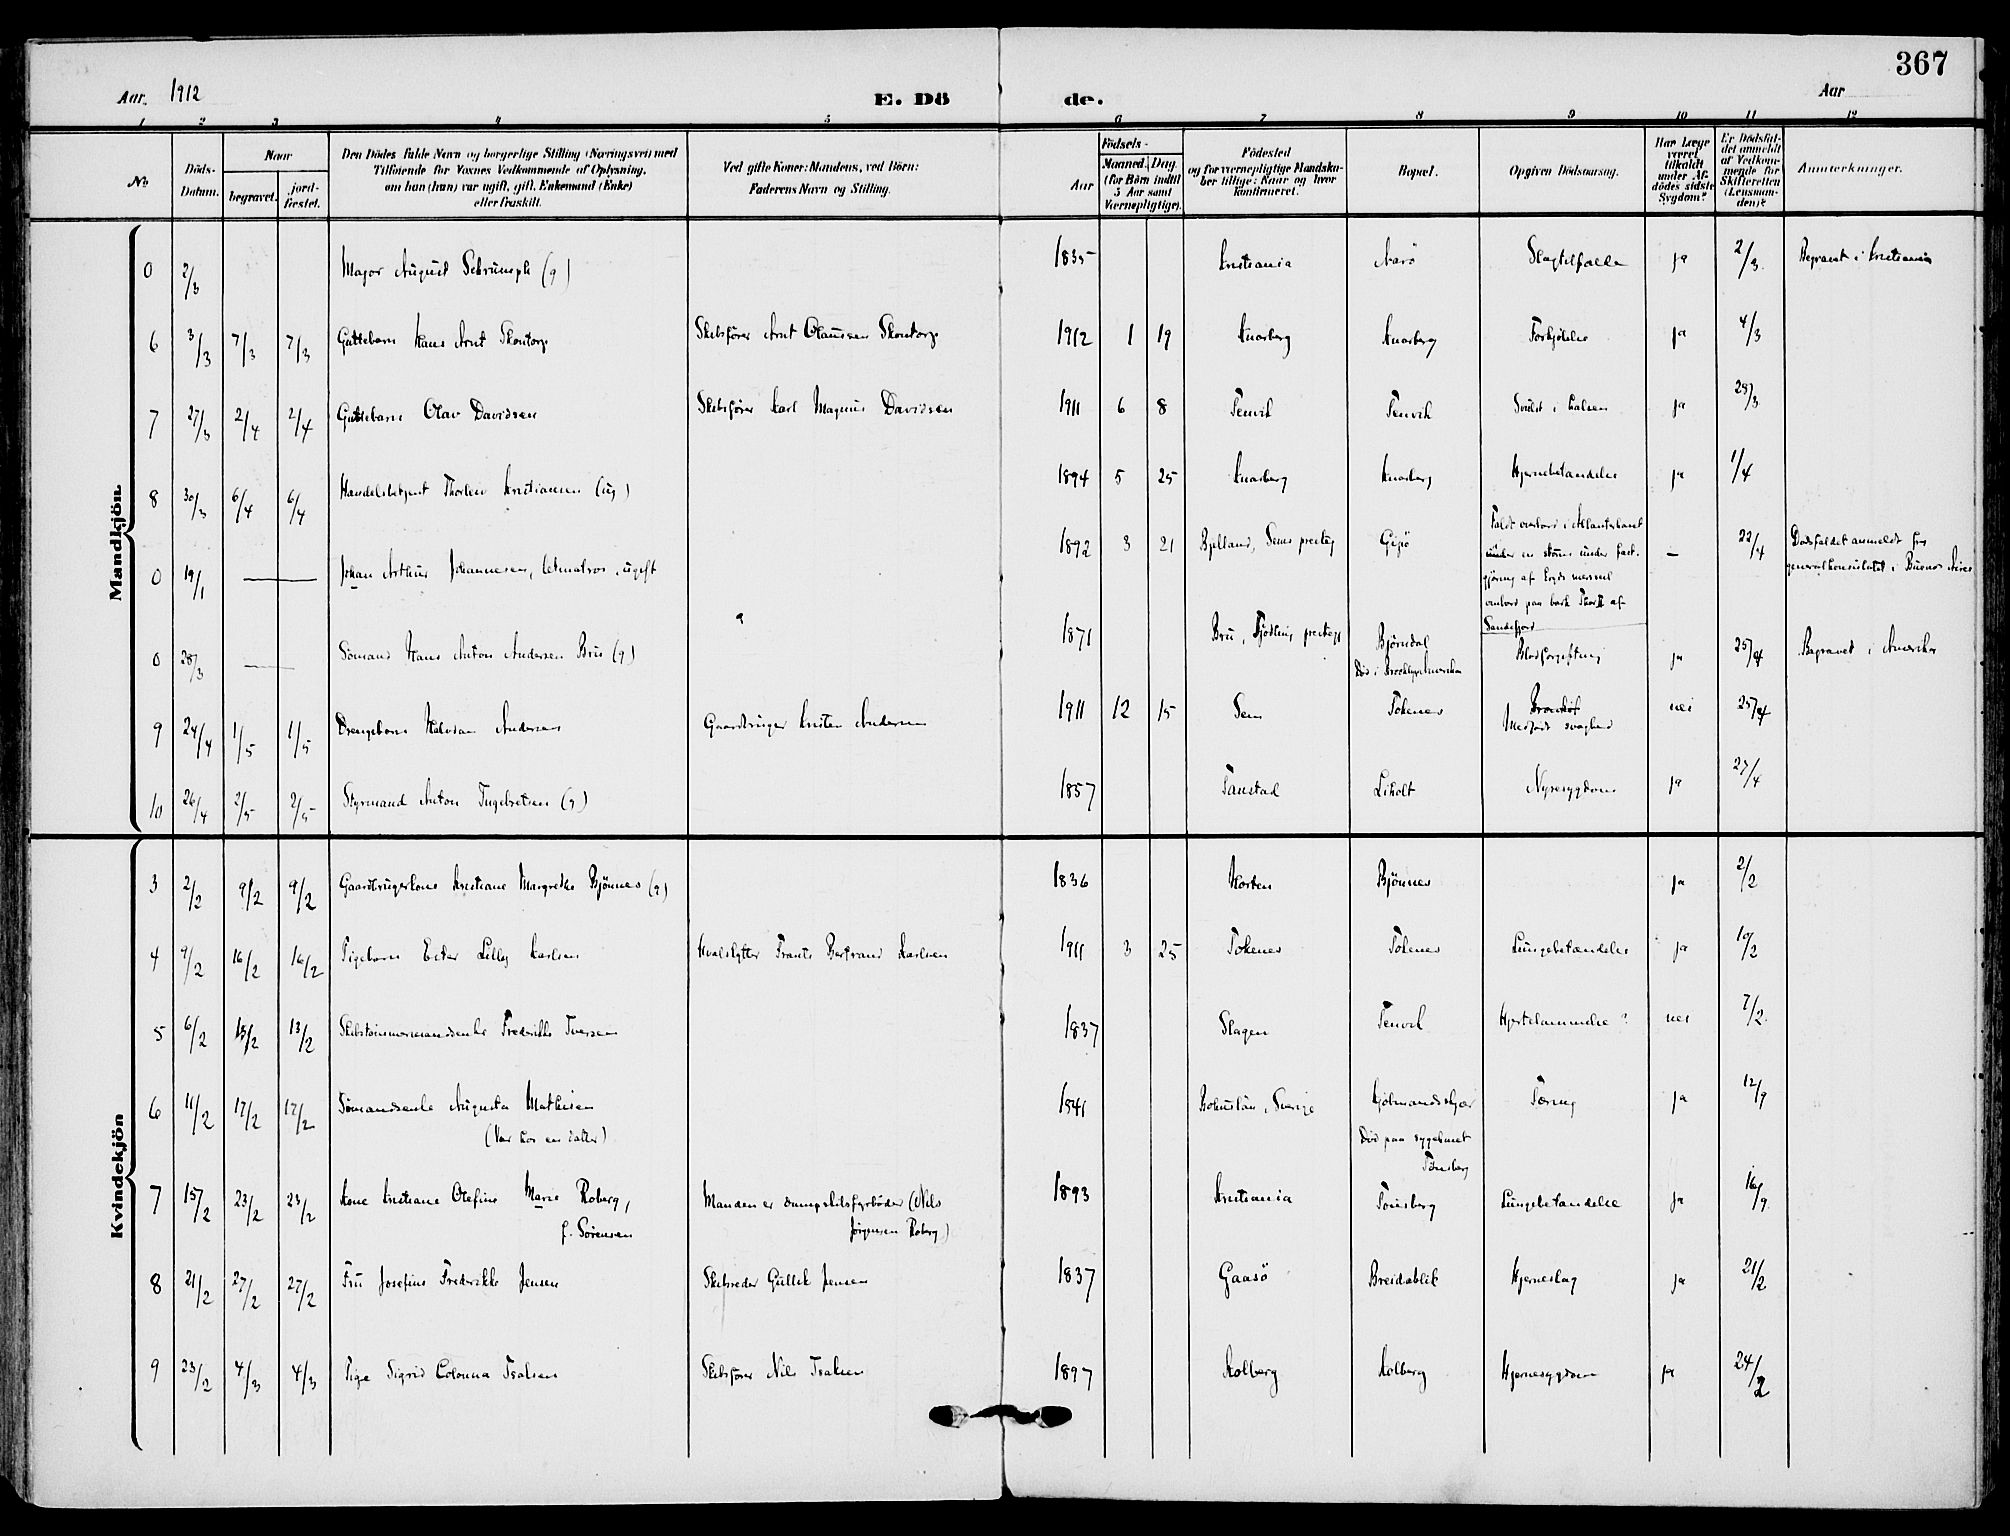 367
Aar. 1912
E. Dö de.
Aar
1 2 3 4 5 6 7 8 9 10 11 12
No.
Döds-Datum.
Naar
begravet.
jord-fæstet.
Den Dödes fulde Navn og borgerlige Stilling (Næringsvei) med
Tilföiende for Voxnes Vedkommende af Oplysning,
om han (hun) var ugift, gift, Enkemand (Enke)
eller fraskilt.
Ved gifte Koner: Mandens, ved Börn:
Faderens Navn og Stilling.
Födsels-
Aar
Maaned. Dag.
(for Börn indtil
5 Aar samt
Værnepligtige).
Födested
og for værnepligtige Mandska-
ber tillige: Naar og hvor
konfirmeret.
Bopæl.
Opgiven Dödsaarsag.
Har Læge
været
tilkaldt
under Af-
dödes sidste
Sygdom?
Er Dödsfal-
det anmeldt
af Vedkom-
mende for
Skifteretten
(Lensman-
den)?
Anmærkninger.
Mandkjön
0 2/3 Major August Schrumpf (g) 1835 Kristiania Narö Slagtilfælde ja 2/3 Begravet i Kristiania
6 3/3 7/3 7/3 Guttebarn Hans Arnt Skontorp Skibsfører Arnt Olaussen Skontorp 1912 1 19 Knarberg Knarberg Forkjölelse ja 4/3
7 27/3 2/4 2/4 Guttebarn Olav Davidsen Skibsfører Karl Magnus Davidsen 1911 6 8 Tenvik Tenvik Svulst i halsen ja 28/3
8 30/3 6/4 6/4 Handelsbetjent Thorleiv Kristiansen (ug) 1894 5 25 Knarberg Knarberg Hjernebetændelse ja 1/4
0 19/1 — Johan Arthur Johannesen, letmatros, ugift 1892 3 21 Bjelland, Sems prestegj Gipö
Faldt overbord i Atlanterhavet
under en storm under fast-
gjöring af
ombord paa bark Thor II af
Sandefjord
— 22/4
Dødsfaldet anmeldt fra
generalkonsulatet i Buenos Aires
0 28/3 — Sömand Hans Anton Andersen Bru (g) 1871 Bru, Fjödling prestegj Bjørndal
Död i Brooklyn Amerika
Blodforgiftning ja 25/4 Begravet i Amerika
9 24/4 1/5 1/5 Drengebarn Halvdan Andersen Gaardbruger Kristen Andersen 1911 12 15 Sem Tokenes
Medfödt svaghed nei 25/4
10 26/4 2/5 2/5 Styrmand Anton Ingebretsen (g) 1857 Tanstad Liholt Nyresygdom ja 27/4
Kvindekjön
3 2/2 9/2 9/2 Gaardbrugerkone Kristiane Margrethe Bjönnes (g) 1836 Horten Bjönnes ja 2/2
4 9/2 16/2 16/2 Pigebarn Ester Lilly Karlsen Hvalskytter Frants Bertrand Karlsen 1911 3 25 Tokenes Tokenes Lungebetændelse ja 10/2
5 6/2 13/2 13/2 Skibstömmermandsenke Fredrikke Iversen 1837 Slagen Tenvik Hjertelammelse? nei 7/2
6 11/2 17/2 17/2 Sömandsenke Augusta Mathisen 1841 Bohuslän, Sverige Kjölmandskjær Tæring ja 12/9
(Var hos en datter) Död paa sygehuset
Tönsberg
7 15/2 23/2 23/2 Kone Kristiane Olefine Marie Roberg, Manden er dampskibsfyrböder (Nils 1893 Kristiania Tönsberg Lungebetændelse ja 16/9
f. Sörensen Jörgensen Roberg)
8 21/2 27/2 27/2 Fru Josefine Fredrikke Jensen Skibsreder Gullik Jensen 1837 Gaasö Breidablik Hjerneslag ja 21/2
9 23/2 4/3 4/3 Pige Sigrid Colonna Isaksen Skibsfører Nils Isaksen 1897 Kolberg Kolberg Hjernesygdom ja 24/2